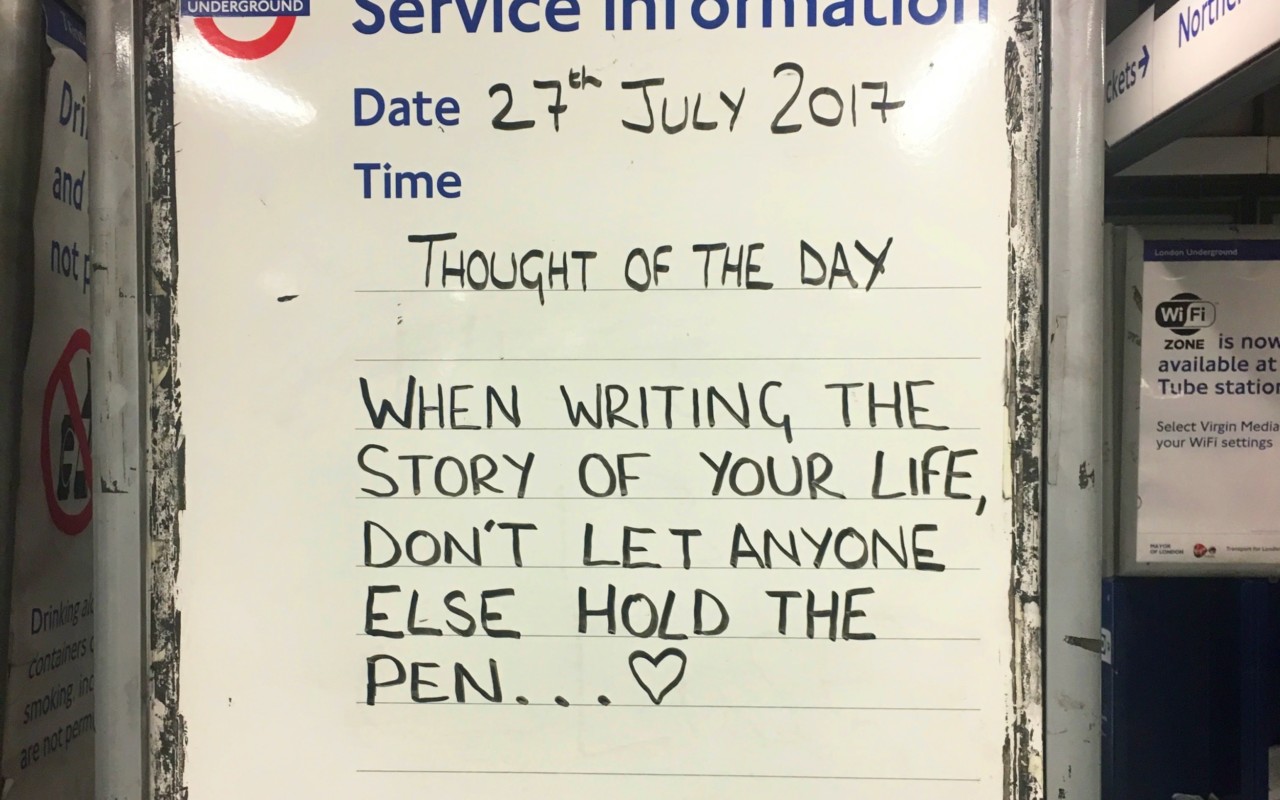 UNDERGROUND
Service Information
Date 27th JULY 2017
Time
THOUGHT OF THE DAY
WHEN WRITING THE
STORY OF YOUR LIFE,
DON'T LET ANYONE
ELSE HOLD THE
PEN...♡
and
not
Drinking
containers
smoking
are not
London Underground
WiFi
ZONE is now
available at
Tube
Select Virgin Media
your WiFi settings
MAYOR
OF LONDON
Transport for